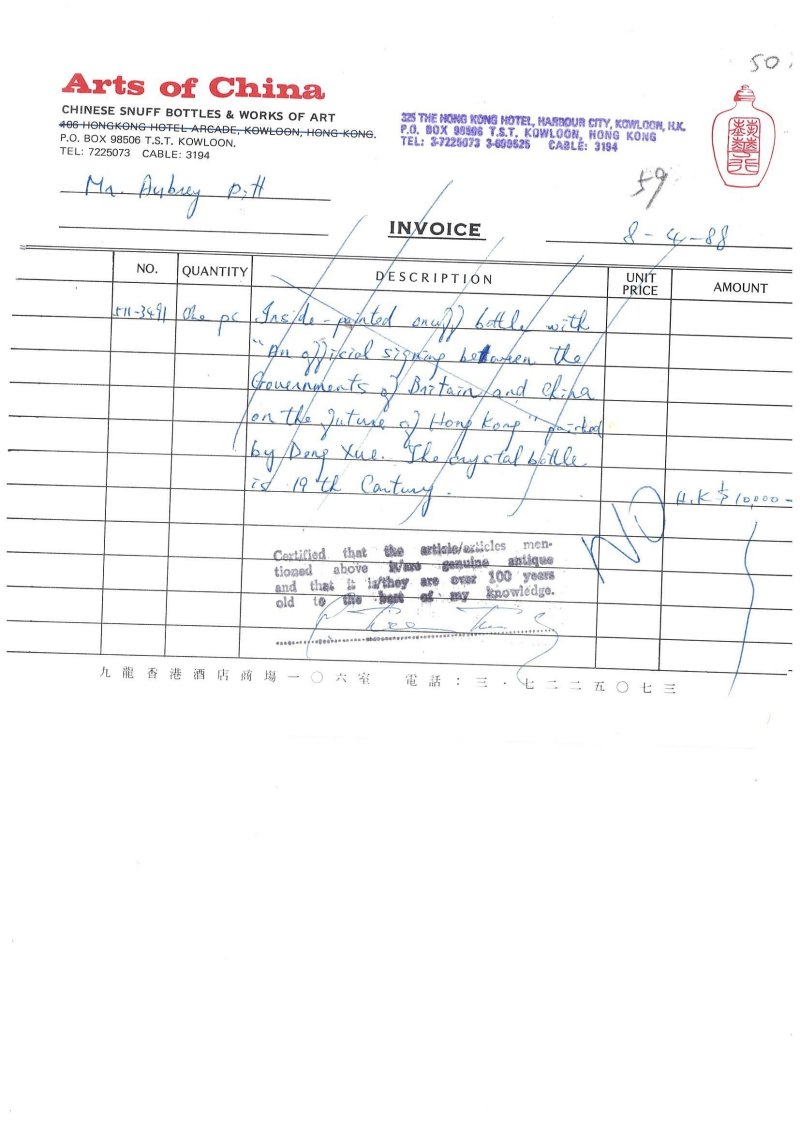 50.
Arts of China
CHINESE SNUFF BOTTLES & WORKS OF ART
106 HONGKONG HOTEL ARCADE, KOWLOON, HONG KONG.
P.O. BOX 98506 T.S.T. KOWLOON.
TEL: 7225073 CABLE: 3194
325 THE HONG KONG HOTEL, HARBOUR CITY, KOWLOON, H.K.
P.O. BOX 98506 T.S.T. KOWLOON, HONG KONG
TEL: 3-7225073 3-699525 CABLE: 3194
Mr. Aubrey Pitt
59
INVOICE
8-4-88
NO. QUANTITY DESCRIPTION UNIT PRICE AMOUNT
511-3491 One pc Inside-painted snuff bottle with
"An official signing between the
Governments of Britain and China
on the future of Hong Kong" painted
by Dong Xue. The crystal bottle
is 19th Century.
H.K$10,000-
NO
Certified that the article/articles men-
tioned above is/are genuine antique
and that it is/they are over 100 years
old to the best of my knowledge.
九龍香港酒店商場一〇六室 電話:三·七二二五〇七三